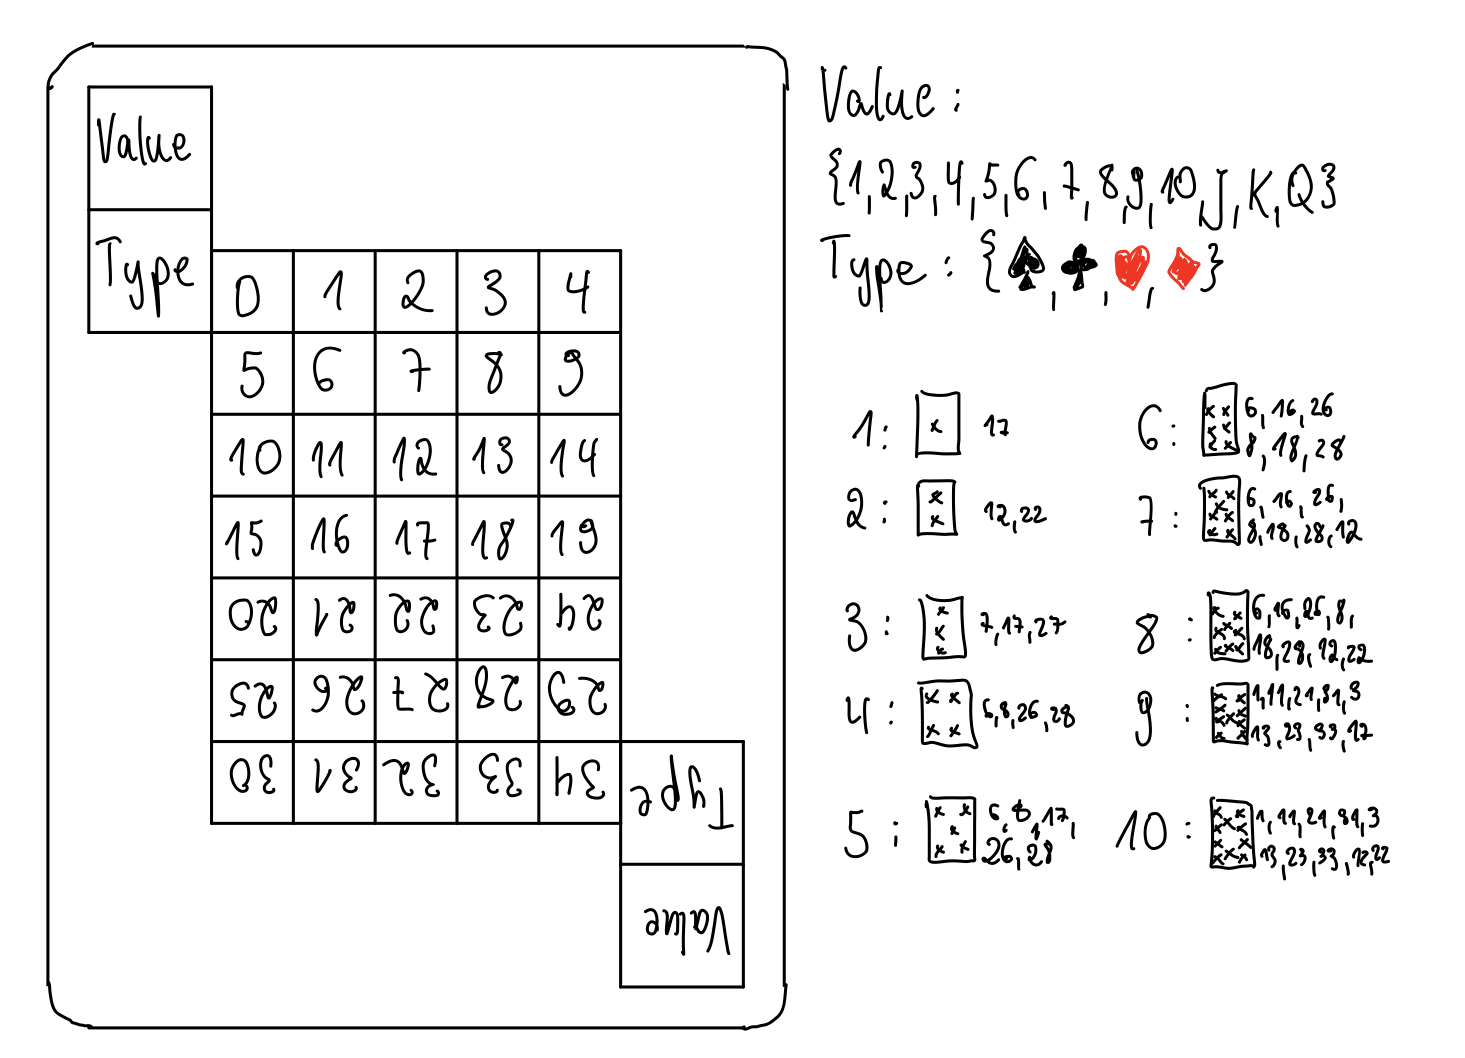 Value
Type
0 1 2 3 4
5 6 7 8 9
10 11 12 13 14
15 16 17 18 19
20 21 22 23 24
25 26 27 28 29
30 31 32 33 34
Type
Value
Value :
{1,2,3,4,5,6,7,8,9,10,J,K,Q}
Type : {♠,♣,♥,♦}
1: 17
2: 12,22
3: 7,17,27
4: 6,8,26,28
5: 6,8,17,
26,28
6: 6,16,26
8,18,28
7: 6,16,26,
8,18,28,12
8: 6,16,26,8,
18,28,12,22
9: 1,11,21,31,3
13,23,33,17
10: 1,11,21,31,3
13,23,33,12,22